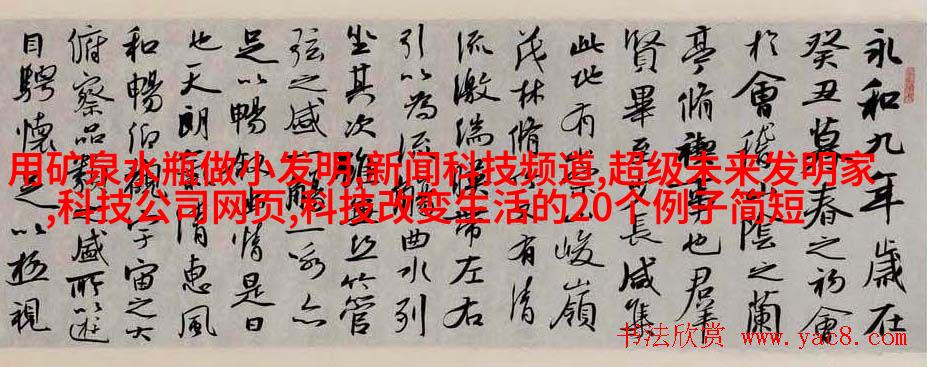 永和九年歲在
癸丑暮春之初會
於會稽山陰之蘭
亭脩禊事也羣
賢畢至少長咸集
此地有崇山峻嶺
茂林脩竹又有清
流激湍暎帶左右
引以為流觴曲水列
坐其次雖無絲竹管
弦之盛一觴一詠亦
足以暢敘幽情是日
也天朗氣清惠風
和暢仰觀宇宙之大
俯察品類之盛所以遊
目騁懷足以極視
用矿泉水瓶做小发明,新闻科技频道,超级未来发明家
,科技公司网页,科技改变生活的20个例子简短
书法欣赏 www.yac8.com